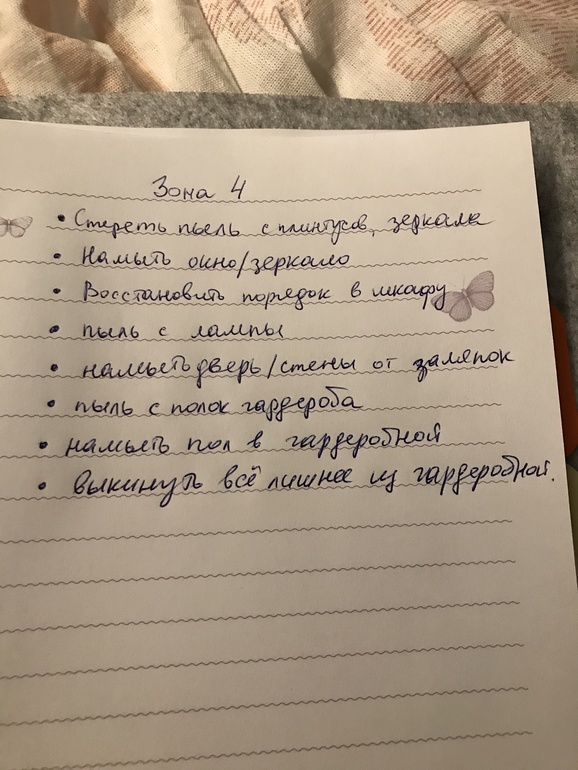 Зона 4
• Стереть пыль с плинтусов, зеркала
• Намыть окно/зеркало
• Восстановить порядок в шкафу
• пыль с лампы
• намыть дверь/стены от заляпок
• пыль с полок гардероба
• намыть пол в гардеробной
• выкинуть всё лишнее из гардеробной.